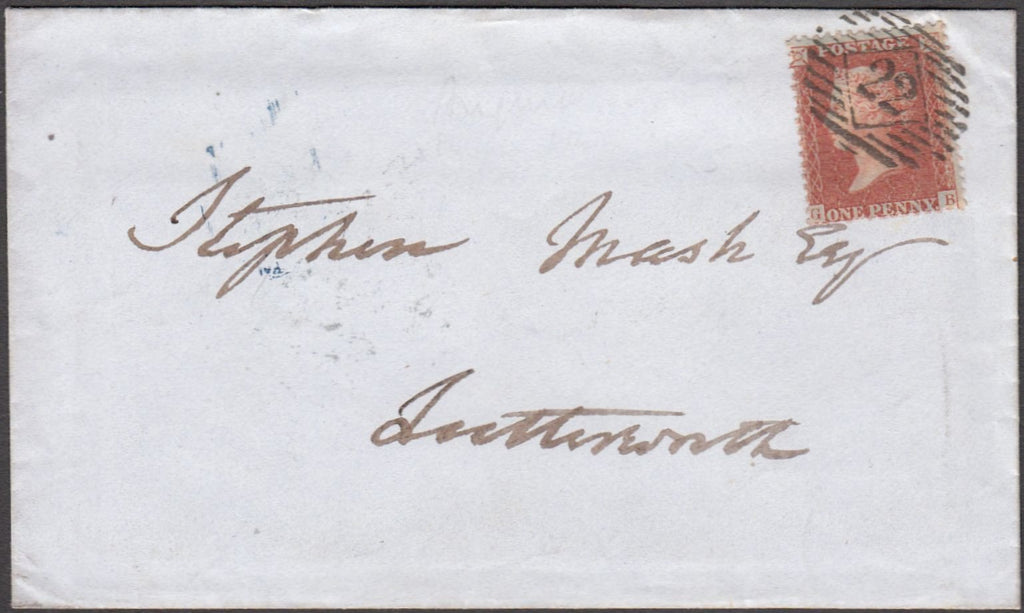 POSTAGE
22
G ONE PENNY B
Stephen Mash Esq
Lutterworth